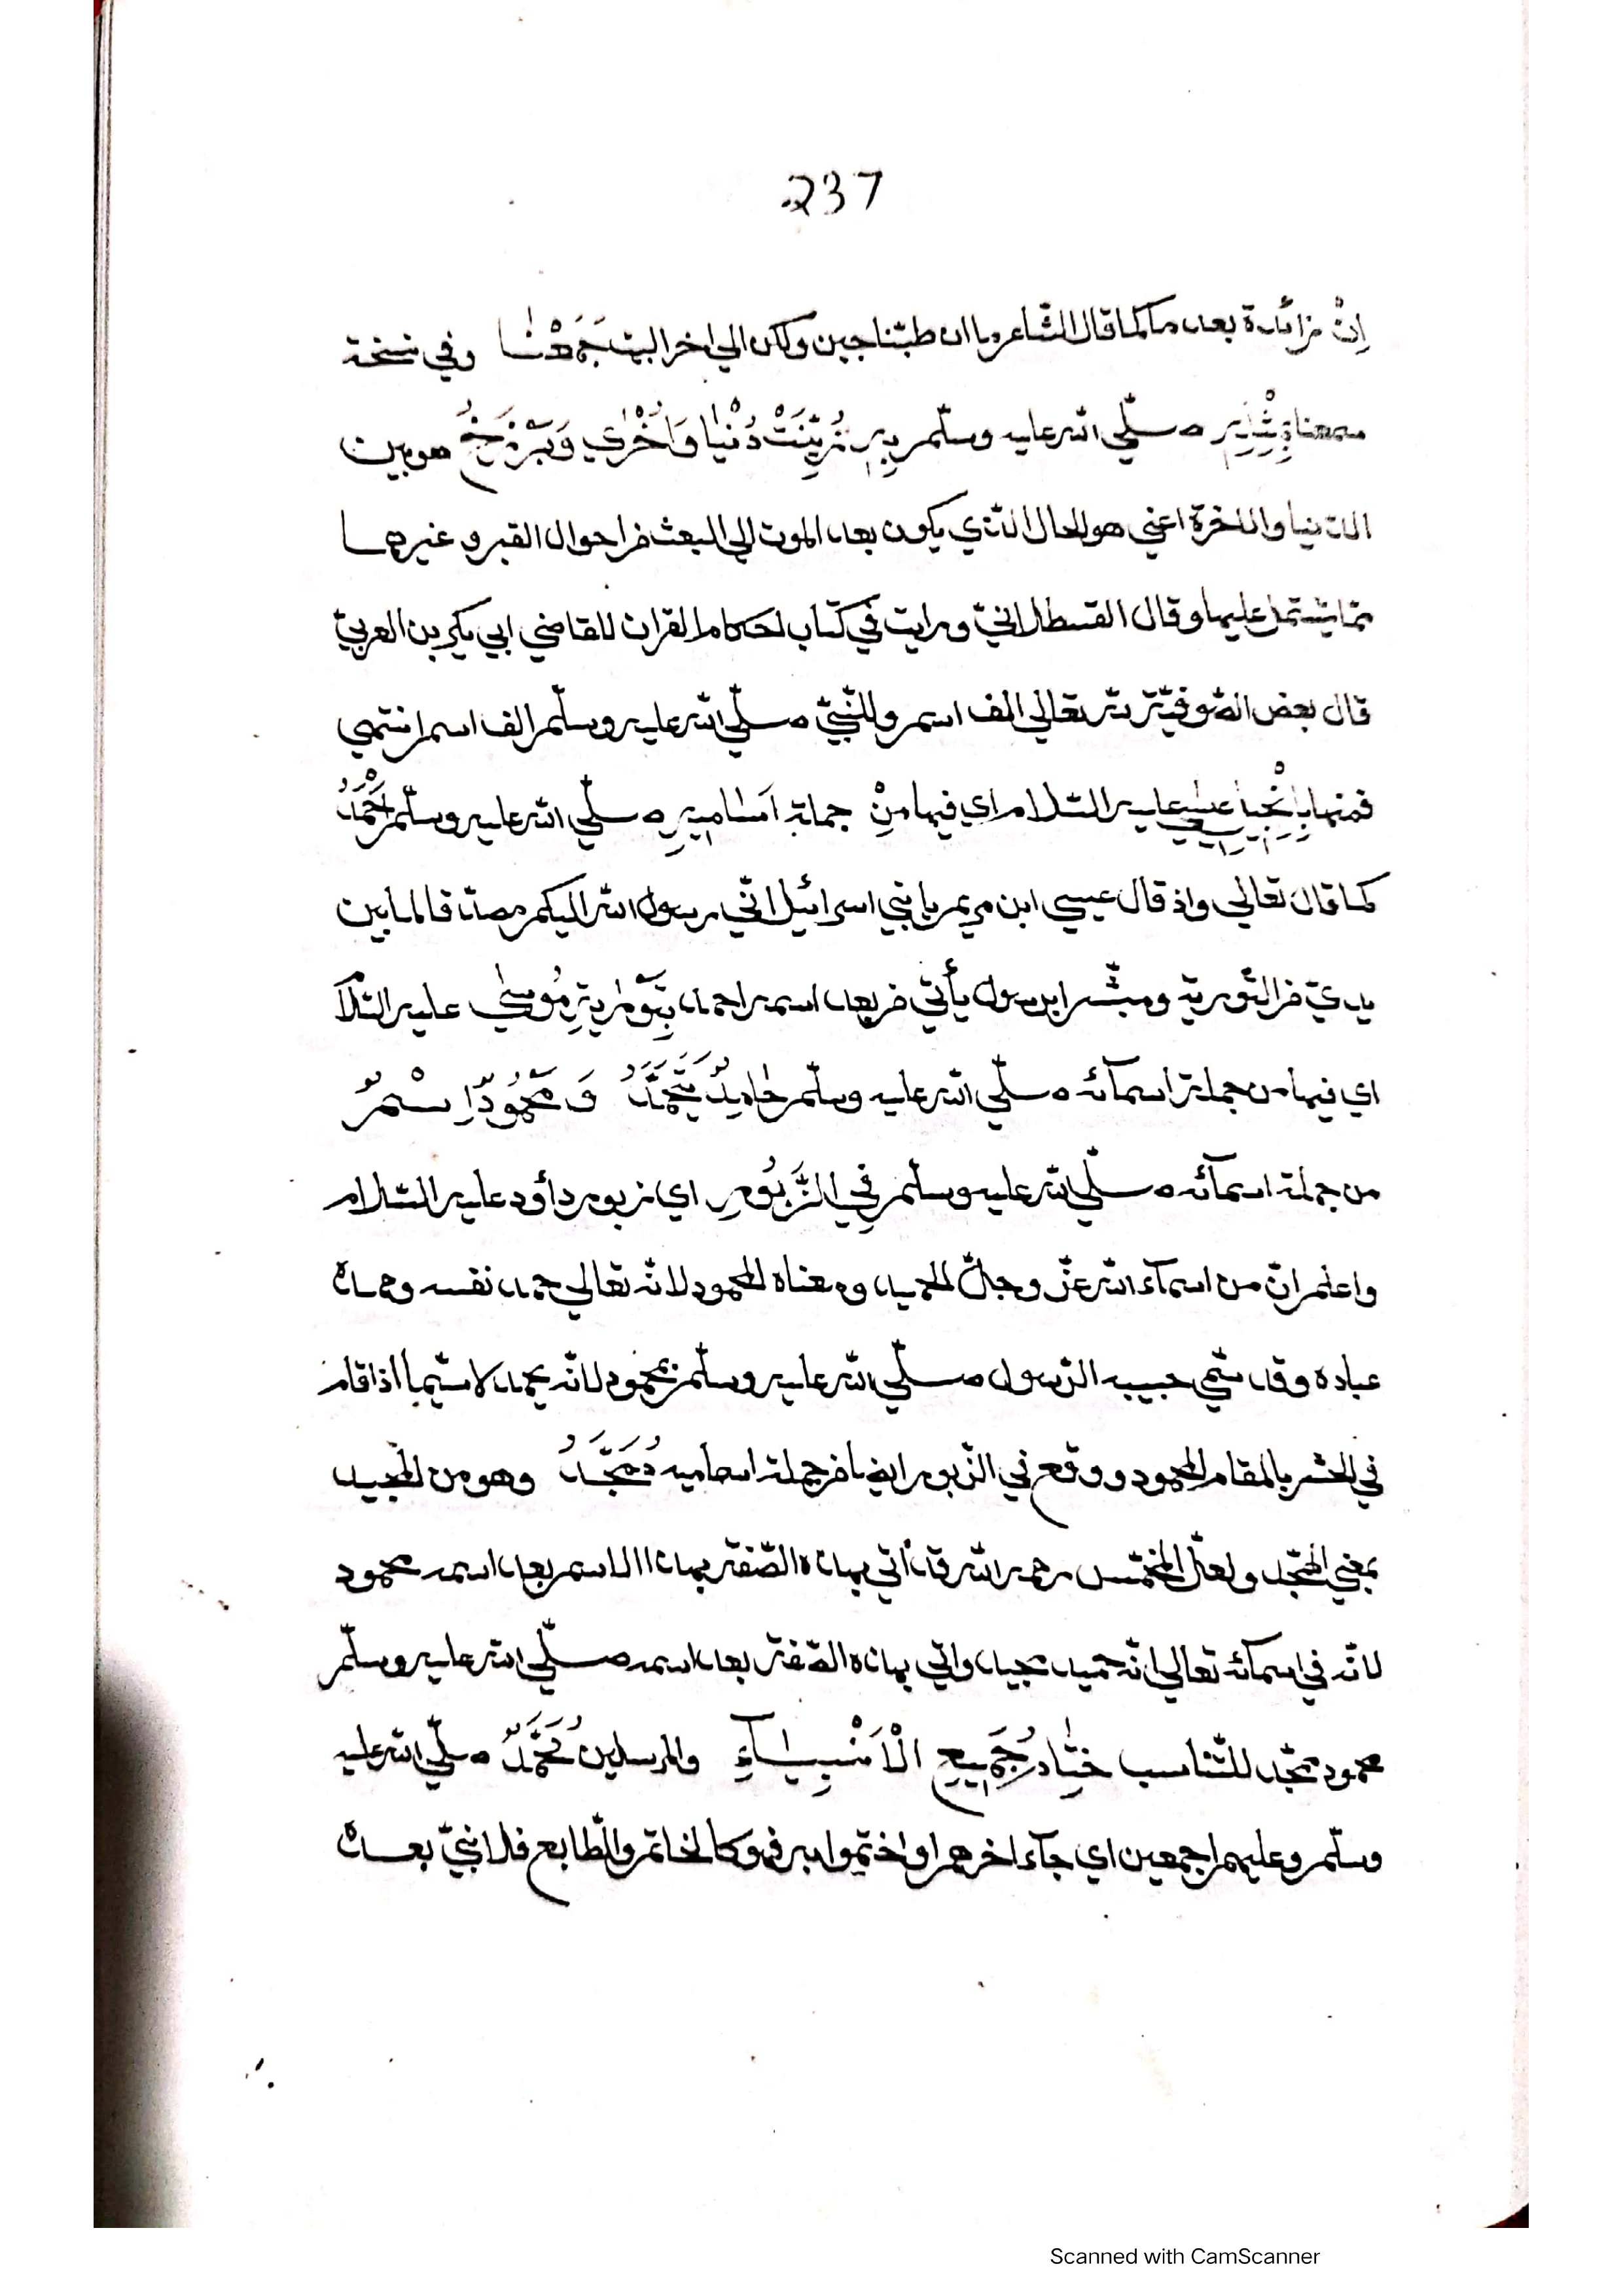 237
اِنْ زائدة بعد ما كما قال الشاعر وما ان طبّنا جبن ولكن الي اخر البيت جَمَعْنٰا وفي نسخة
صلّي الله عليه وسلّم بِهِ زُيِّنَتْ دُنْيٰا وَاُخْرٰي وَبَرْزَخُ هو بين
الدّنيا والاخرة اعني هو الحال الذّي يكون بعد الموت الي البعث من احوال القبر وغيرهما
ممّا يشتمل عليها وقال القسطلانيّ ورايت في كتاب احكام القران للقاضي ابي بكر بن العربيّ
قال بعض الصّوفيّة لله تعالي الف اسم وللنّبيّ صلّي الله عليه وسلّم الف اسم انتهي
فمنها بِاِنْجِيلِ عيسي عليه السّلام اي فيها مِنْ جملة اَسٰامِيهِ صلّي الله عليه وسلّم اَحْمَدُ
كما قال تعالي واذ قال عيسي ابن مريم يا بني اسرائيل انّي رسول الله اليكم مصدّقا لما بين
يديّ من التّورية ومبشّرا برسول يأتي من بعد اسمه احمد بِتَوْرٰيةِ مُوسٰي عليه السّلا
اي فيها من جملة اسمآئه صلّي الله عليه وسلّم حٰامِدٌ وَمَحْمُودٌ اِسْمٌ
من جملة اسمآئه صلّي الله عليه وسلّم فِي الزَّبُورِ اي زبور داؤد عليه السّلام
واعلم انّ من اسمآء الله عزّ وجلّ الحميد ومعناه المحمود لانّه تعالي حمد نفسه وحمده
عباده وقد سمّي حبيبه الرّسول صلّي الله عليه وسلّم بمحمود لانّه يحمد لا سيّما اذا قام
في الحشر بالمقام المحمود ووقع في الزّبور ايضا من جملة اساميه مُمَجَّدُ وهو من المجيد
بمعني الممجّد ولعلّ المخمّس رحمه الله قد أتي بهذه الصّفة بهذا الاسم بعد اسمه محمود
لانّه في اسمائه تعالي انّه حميد مجيد واتي بهذه الصّفة بعد اسمه صلّي الله عليه وسلّم
محمود ممجّد للتّناسب خِتٰامُ جَمِيعِ الْاَنْبِيٰآءِ والمرسلين مُحَمَّدٌ صلّي الله عليه
وسلّم وعليهم اجمعين اي جآء اخرهم او اختموا به فهو كالخاتم والطّابع فلا نبيّ بعده
Scanned with CamScanner